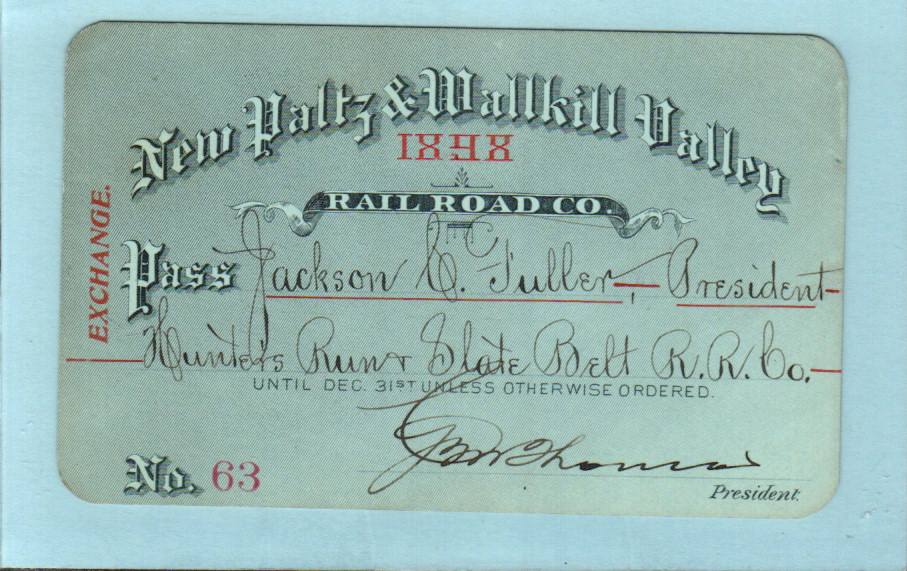 New Paltz & Wallkill Valley
1898
RAIL ROAD CO.
EXCHANGE.
Pass Jackson C. Fuller, — President —
Hunter's Run & Slate Belt R.R. Co. —
UNTIL DEC. 31ST UNLESS OTHERWISE ORDERED.
No. 63
President.